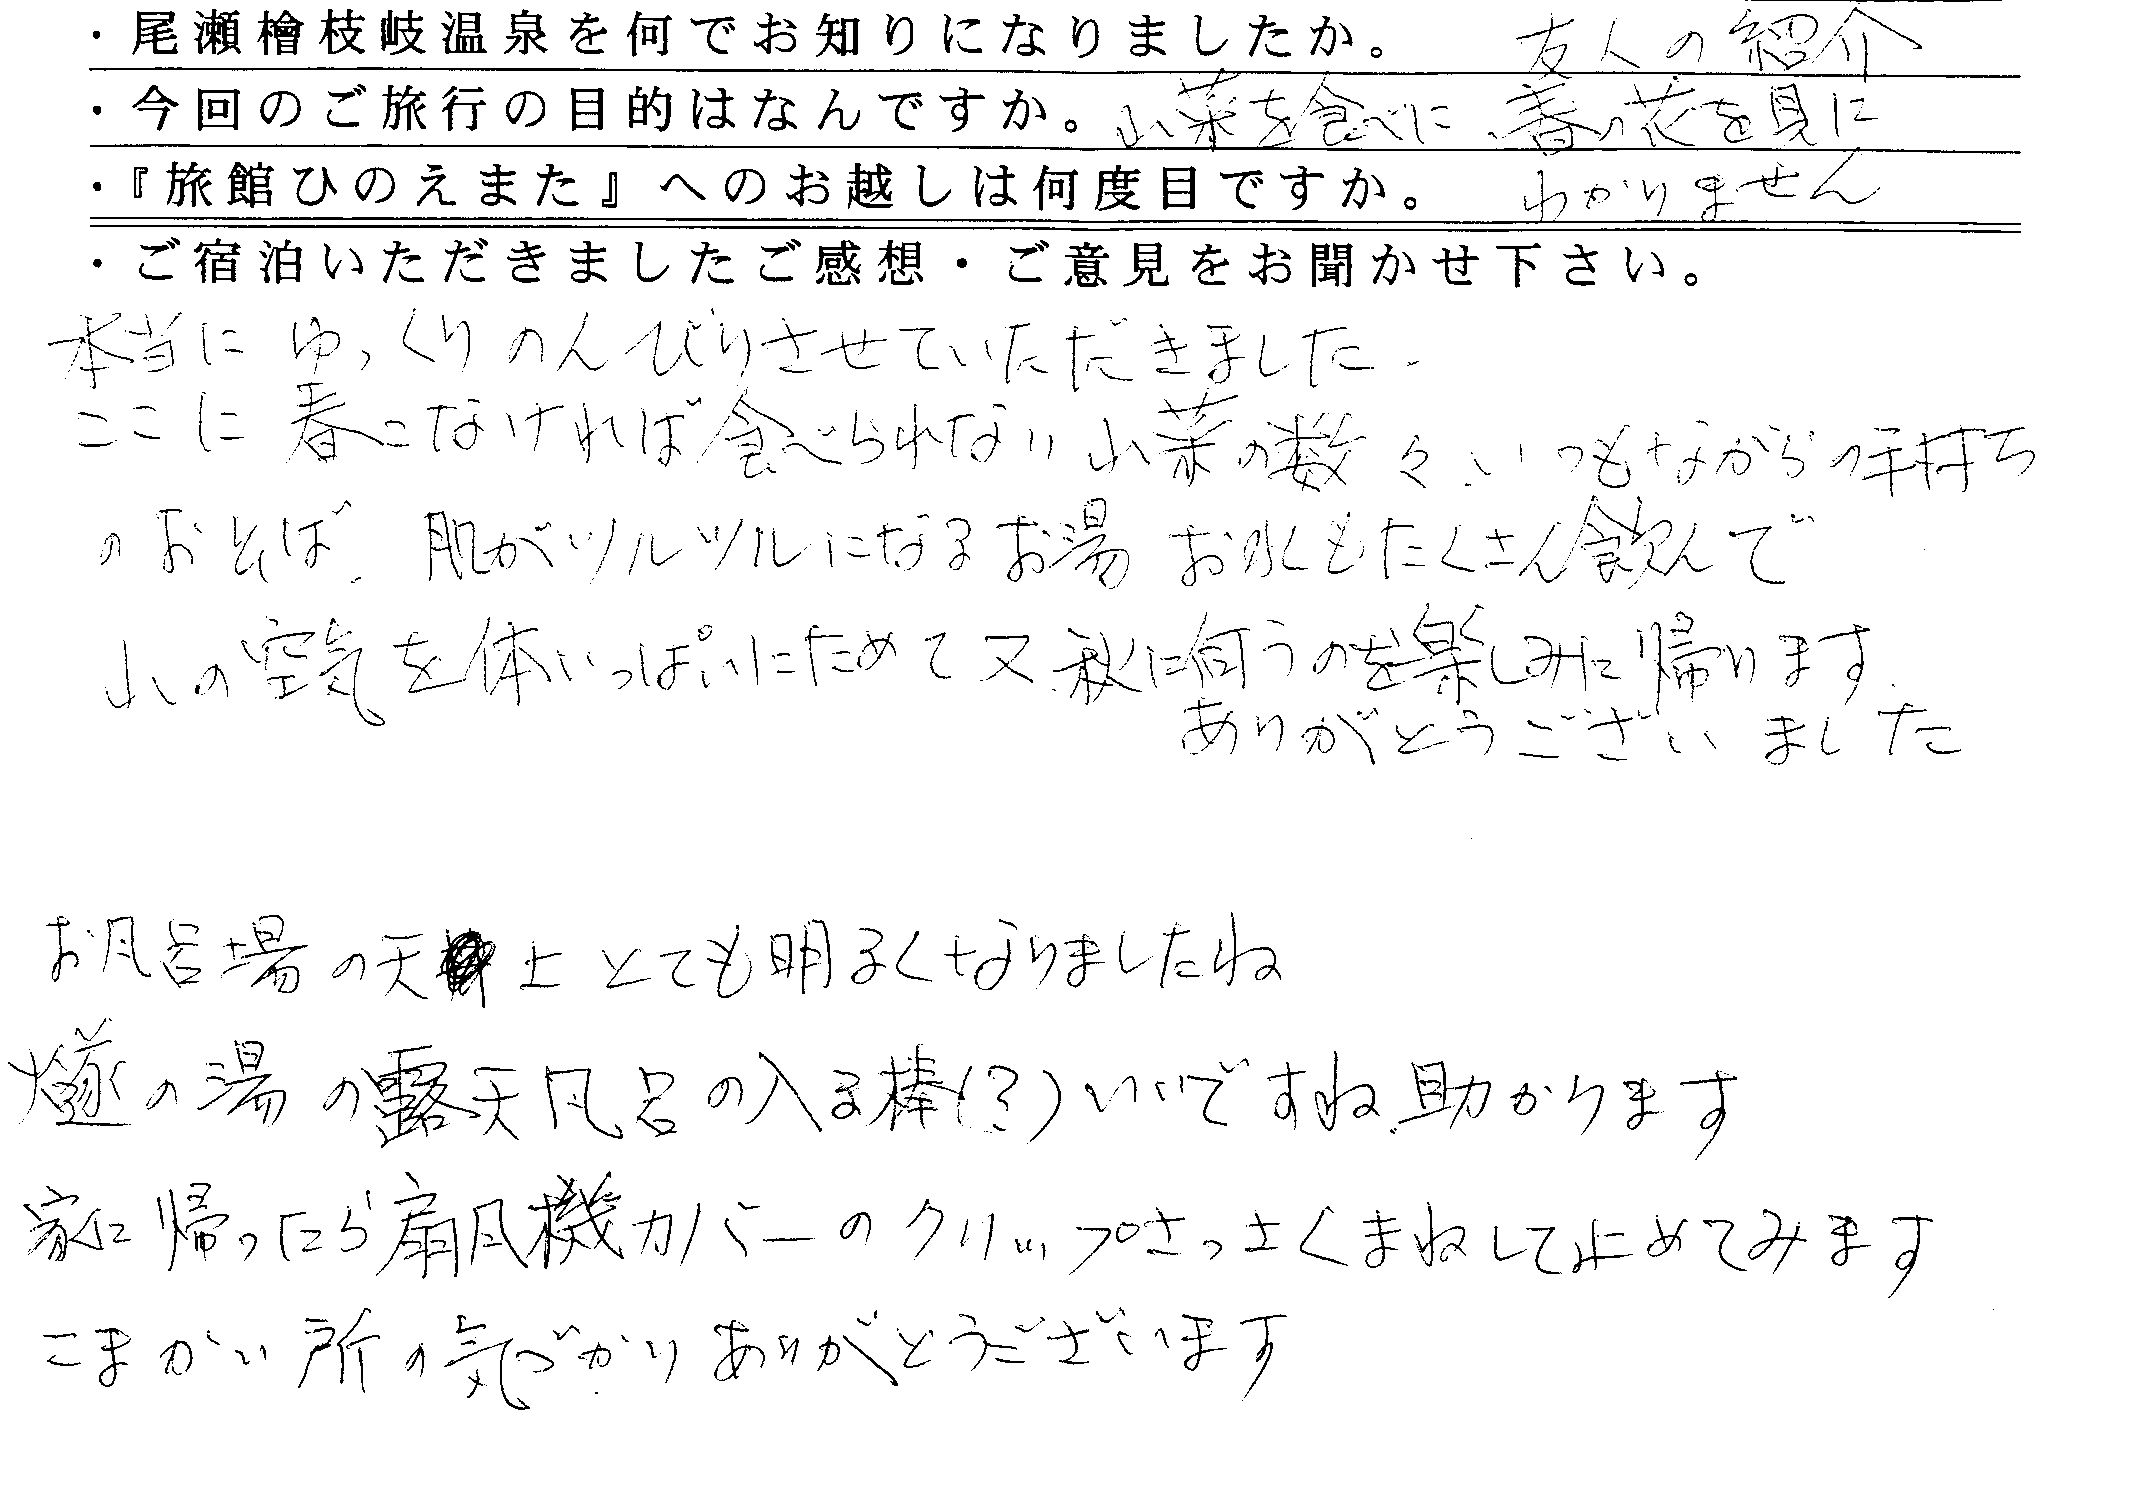 ・尾瀬檜枝岐温泉を何でお知りになりましたか。 友人の紹介
・今回のご旅行の目的はなんですか。山菜を食べに、春の花を見に
・『旅館ひのえまた』へのお越しは何度目ですか。 わかりません
・ご宿泊いただきましたご感想・ご意見をお聞かせ下さい。
本当に ゆっくりのんびりさせていただきました。
ここに 春こなければ食べられない山菜の数々、いつもながらの手持ち
のおそば、肌がツルツルになるお湯 お水もたくさん飲んで
山の空気を体いっぱいにためて又、秋に伺うのを楽しみに帰ります。
ありがとうございました
お風呂場の天上とても明るくなりましたね
燧の湯の露天風呂の入る棒(?)いいですね、助かります
家に帰ったら扇風機カバーのクリップさっさくまねして止めてみます
こまかい所の気づかりありがとうございます